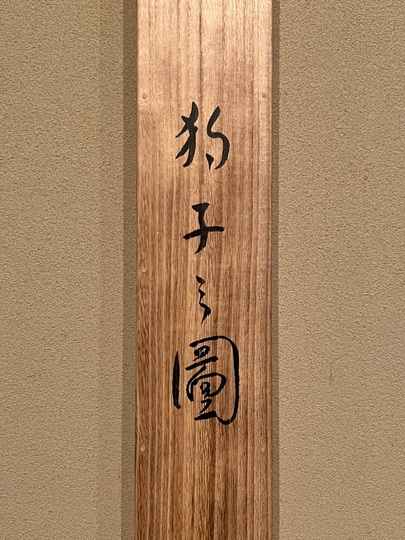 狗子之圖